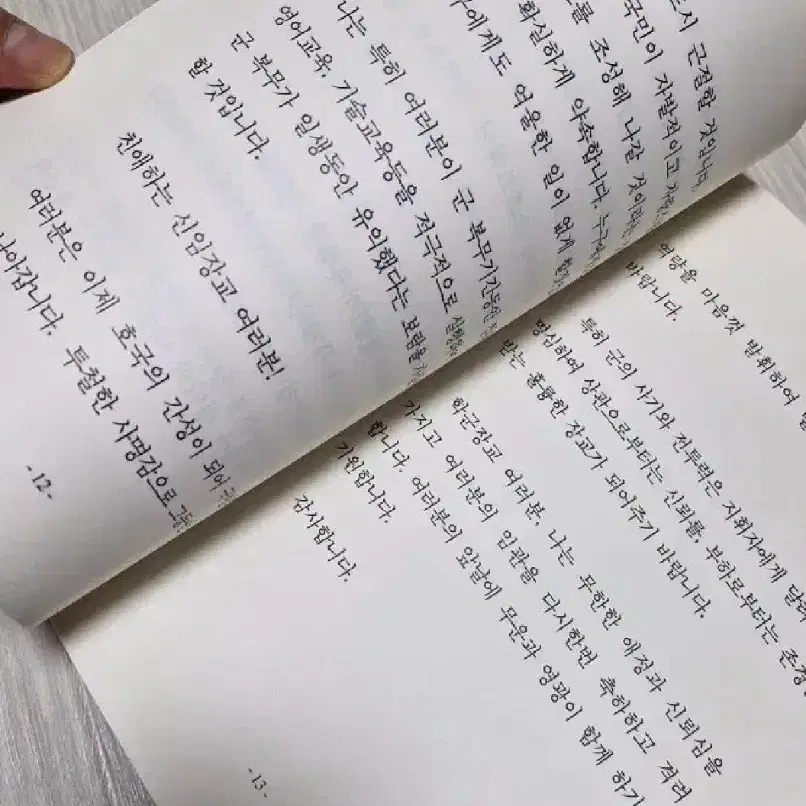 도시 근절할 것입니다.
국민이 자발적이고
를 조성해 나갈 것이라는
확실하게 약속합니다. 누구
구에게도 억울한 일이 없게 할
나는 특히 여러분이 군 복무기간동안
영어교육, 기술교육등을 적극적으로
군 복무가 일생동안 유익했다는 보람을
할 것입니다.
친애하는 신임장교 여러분!
여러분은 이제 호국의 간성이 되어
나아갑니다. 투철한 사명감으로
-12-
역량을 마음껏 발휘하여
바랍니다.
특히 군의 사기와 전투력은 지휘자에게 달려
명심하여 상관으로부터는 신뢰를, 부하로부터는 존경
받는 훌륭한 장교가 되어주기 바랍니다.
학군장교 여러분, 나는 무한한 애정과 신뢰심을
가지고 여러분의 임관을 다시한번 축하하고 격려
합니다. 여러분의 앞날에 무운과 영광이 함께 하기
기원합니다.
감사합니다.
-13-